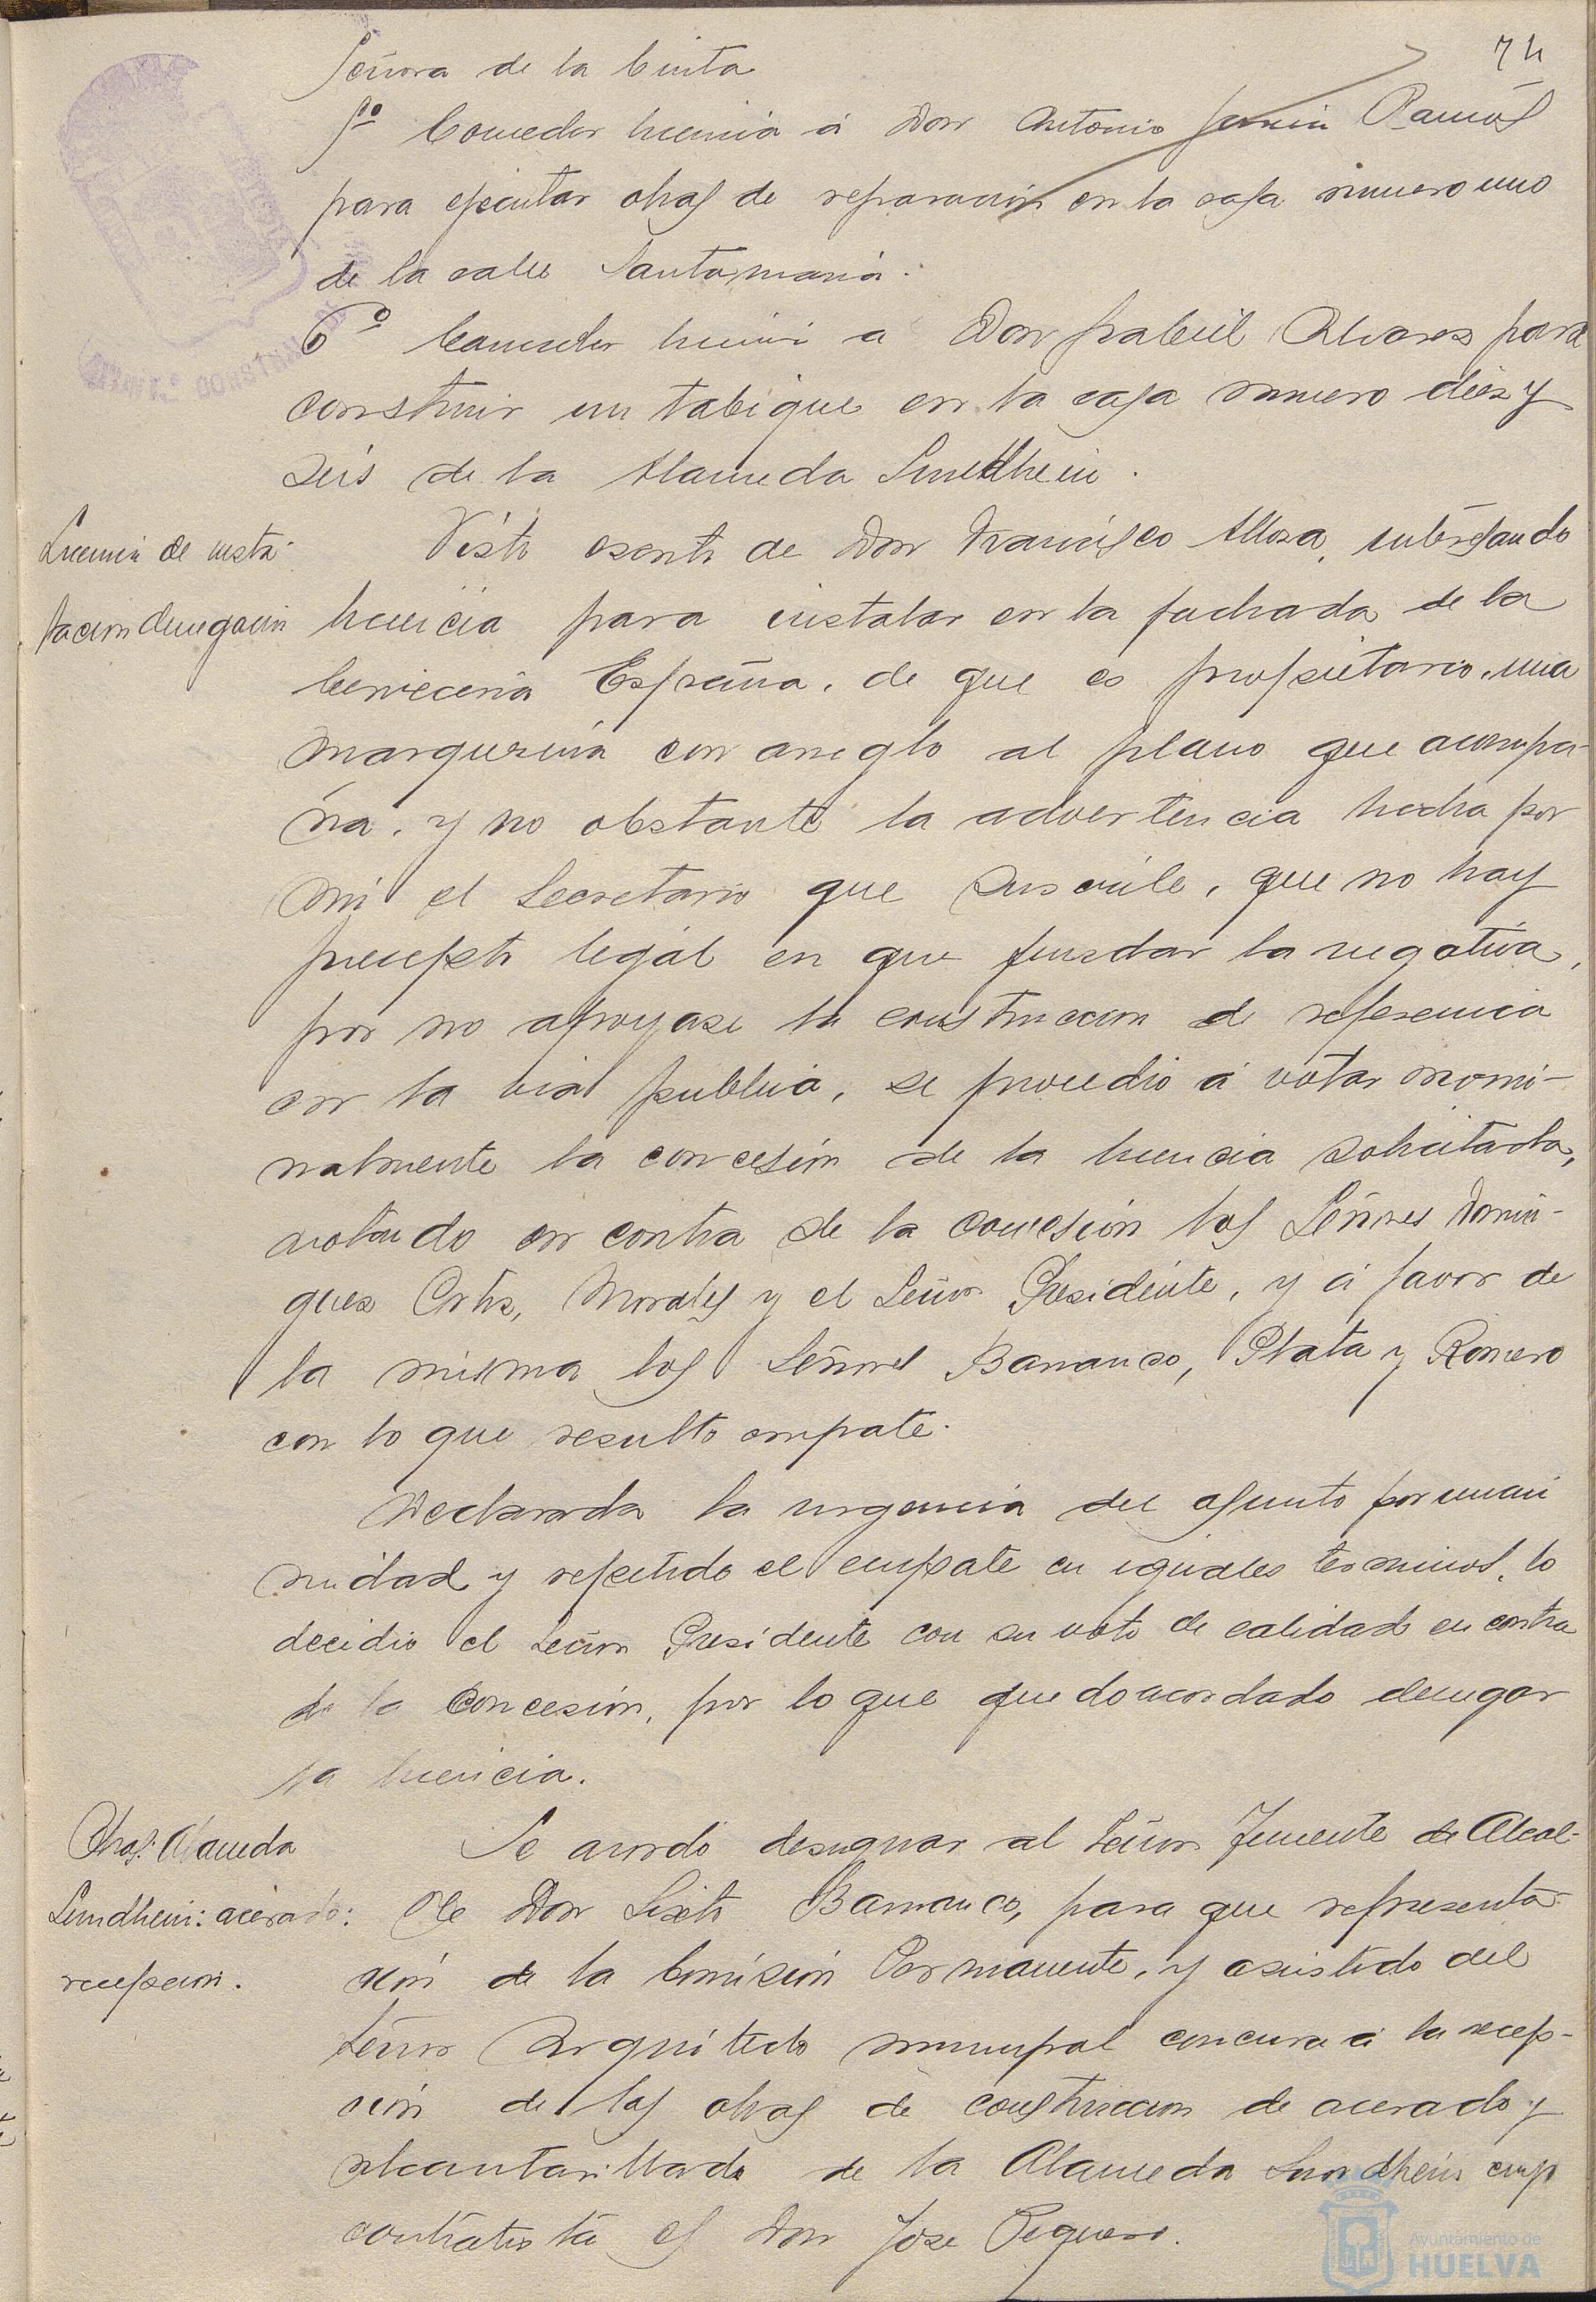 74
Señora de la Cinta
5º Conceder licencia á Don Antonio Ramos
para ejecutar obras de reparación en la casa número uno
de la calle Santamaría.
6º Conceder licencia a Don Gabriel Alvarez para
construir un tabique en la casa numero diez y
seis de la Alameda Sundheim.
Licencia de insta-
lacion denegacion
Visto escrito de Don Francisco Allosa, interesando
licencia para instalar en la fachada de la
Cerveceria España, de que es propietario, una
marquesina con arreglo al plano que acompa-
ña, y no obstante la advertencia hecha por
mi el Secretario que suscribe, que no hay
precepto legal en que fundar la negativa,
por no apoyase la construccion de referencia
en la via publica, se procedio á votar nomi-
nalmente la concesión de la licencia solicitada,
votando en contra de la concesión los Señores Domin-
guez Ortiz, Morales y el Señor Presidente, y á favor de
la misma los Señores Barranco, Plata y Romero
con lo que resulto empate.
Declarada la urgencia del asunto por unani
midad y repetido el empate en iguales terminos, lo
decidio el Señor Presidente con su voto de calidad en contra
de la concesión, por lo que quedo acordado denegar
la licencia.
Obras Alameda
Sundheim: acerado:
recepcion.
Se acordo designar al Señor Teniente de Alcal-
de Don Sixto Barranco, para que representa
ción de la Comisión Permanente, y asistido del
Señor Arquitecto municipal concurra á la recep-
ción de las obras de construccion de acerado y
alcantarillado de la Alameda Sundheim cuyo
contratista es Don Jose Peguero.
Ayuntamiento de
HUELVA